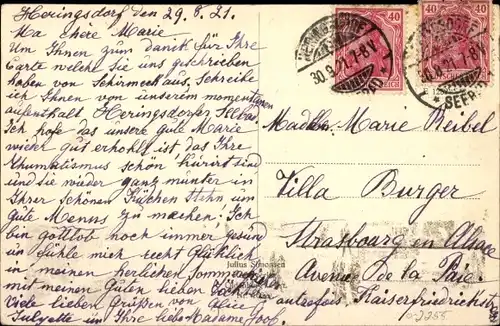 Heringsdorf den 29.8.21.
Ma chere Marie
Um Ihnen zum danik für Ihre
Carte welche Sie uns geschrieben
haben von Schirmeck aus, Schreibe
ich Ihnen von unserem momentanen
aufenthalt Heringsdorfer
Ich hofe das unsere gute Marie
wieder gut erhohlt ist das Ihre
Rhumatismus schön kürirt sind
und sie wieder ganz munter in
Ihrer schonen Küchen Stehn, um
gute Menus zu machen; Ich
bin gottlob noch immer gesund
in fühle mich recht Glücklich
in meinen herlichen Sommer
mit meinen Guten lieben
Viele lieben Grüßen von Alice
Julyette in Ihre liebe Madame Joof.
HERINGSDORF
30.9.21. 7-8 V.
SEEBAD
40
40
Madlle Marie Beibel
Villa Burger
Strasbourg en Alsace
Avenue de la Paix
autrefois, Kaiserfriedrichstr
Julius Simonsen
0-2255